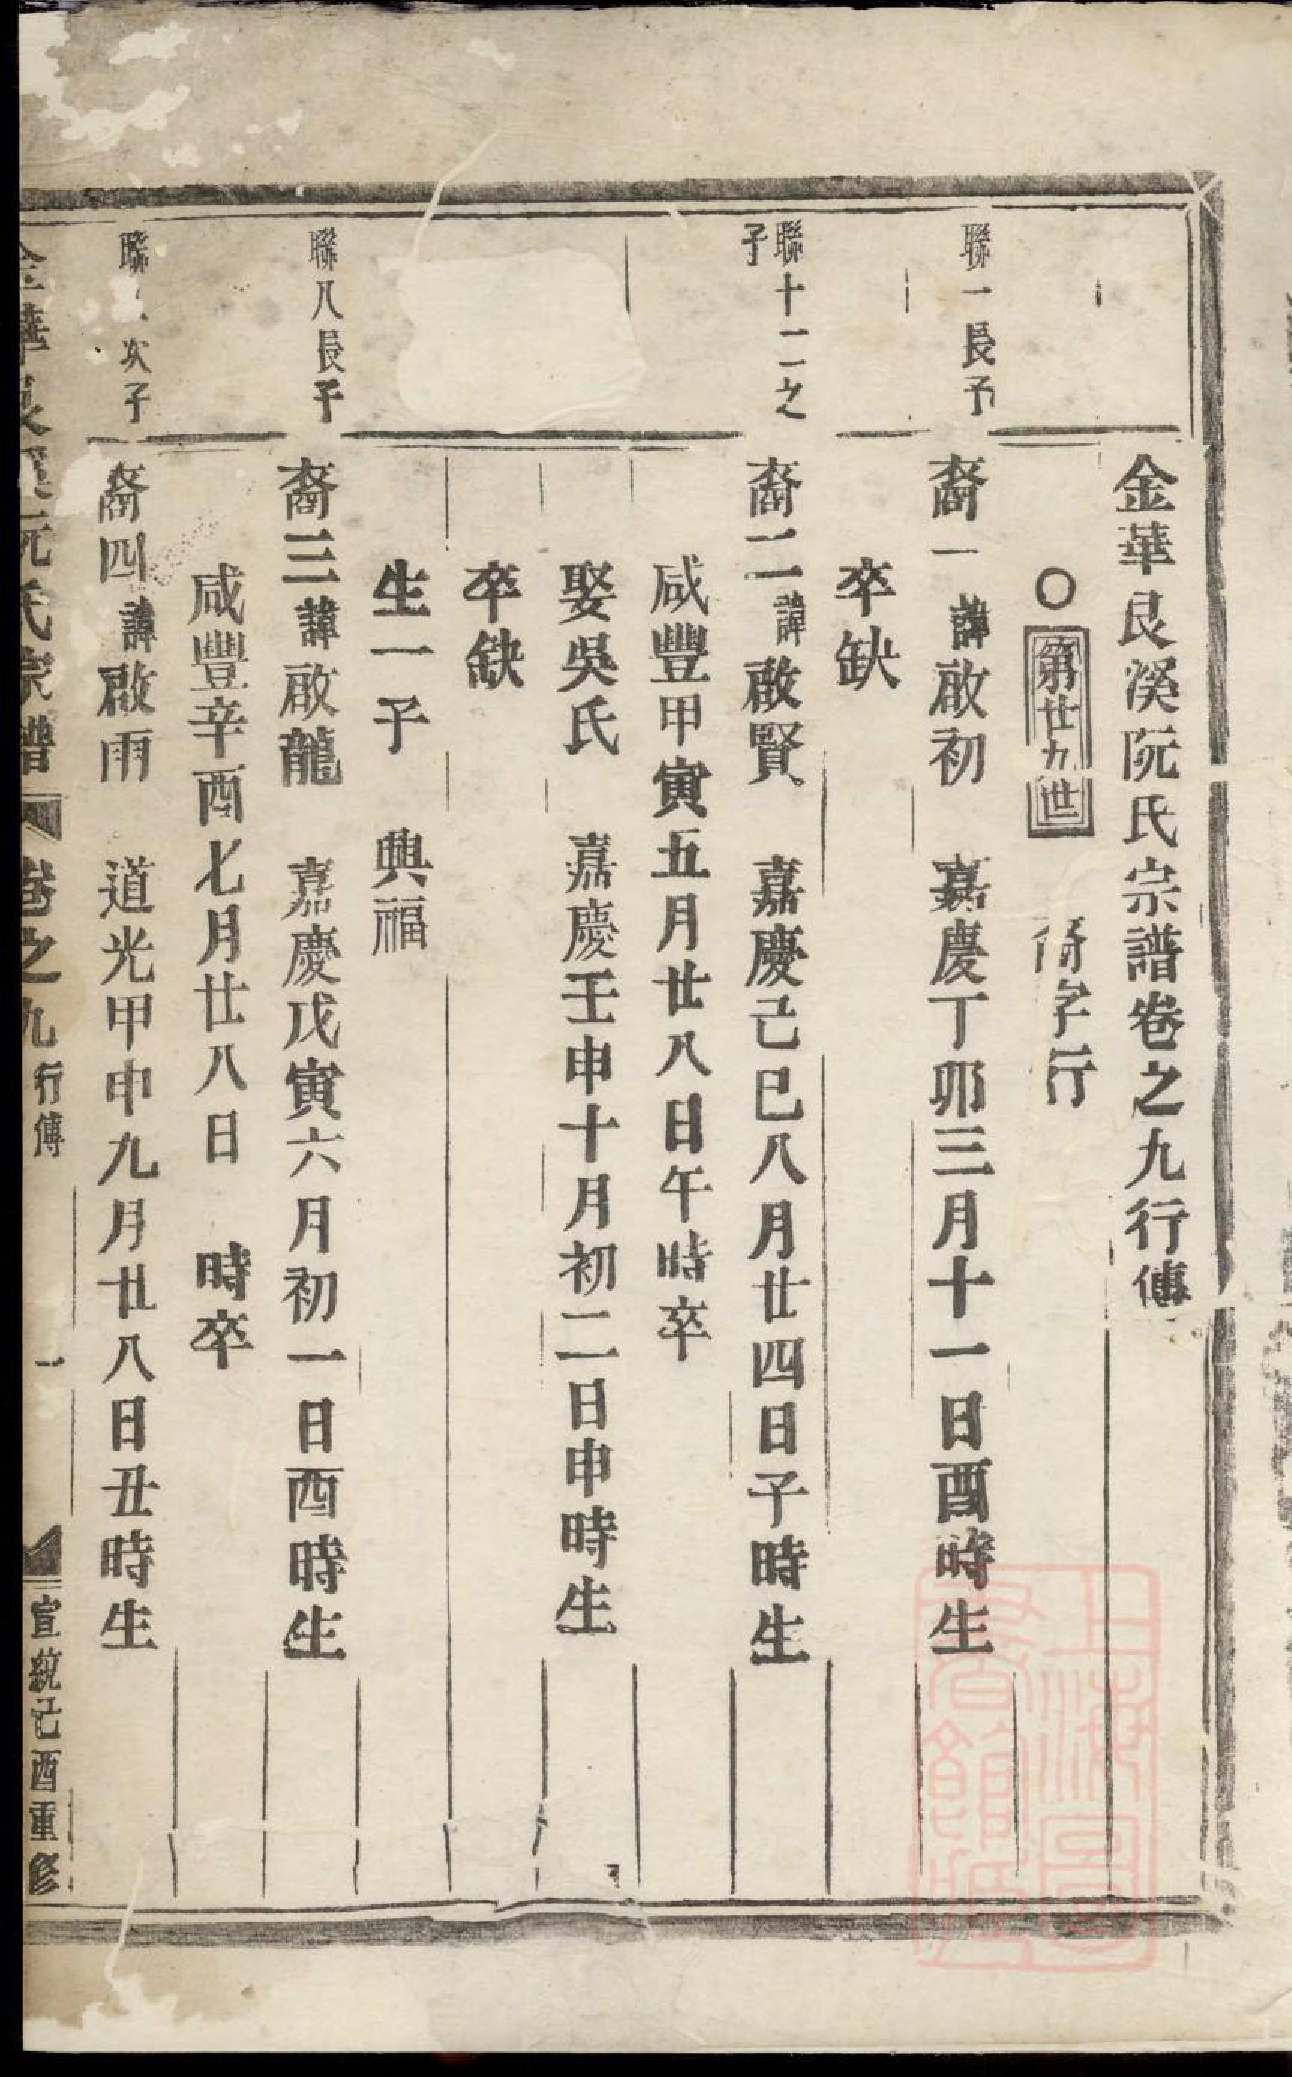 金華艮溪阮氏宗譜卷之九行傳
○第廿九世 裔字行
聯一長子
裔一諱啟初 嘉慶丁卯三月十一日酉時生
卒缺
聯十二之子
裔二諱啟賢 嘉慶己巳八月廿四日子時生
咸豐甲寅五月廿八日午時卒
娶吳氏 嘉慶壬申十月初二日申時生
卒缺
生一子 興福
聯八長子
裔三諱啟龍 嘉慶戊寅六月初一日酉時生
咸豐辛酉七月廿八日 時卒
聯 次子
裔四諱啟雨 道光甲申九月廿八日丑時生
金華艮溪阮氏宗譜 卷之九 行傳 一 宣統己酉重修
上海圖書館藏